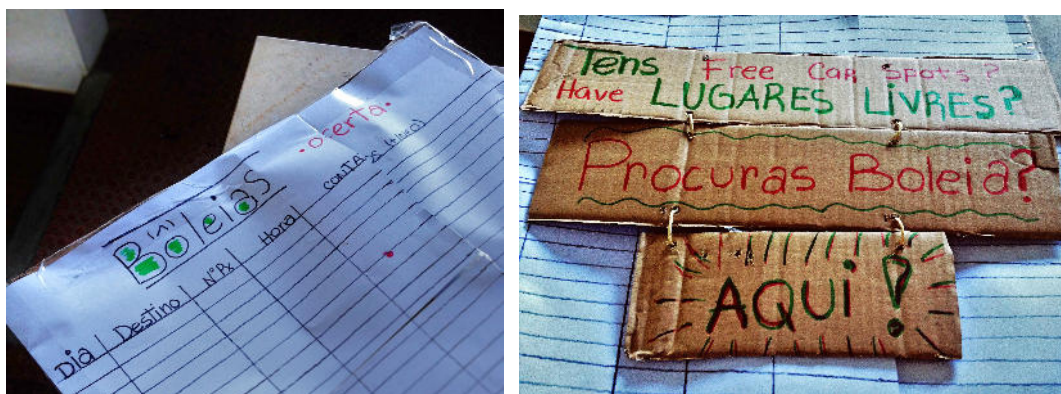 Boleias
• oferta •
Dia
Destino
Nº Px
Hora
Tens Free Car Spots?
Have LUGARES LIVRES?
Procuras Boleia?
AQUi!